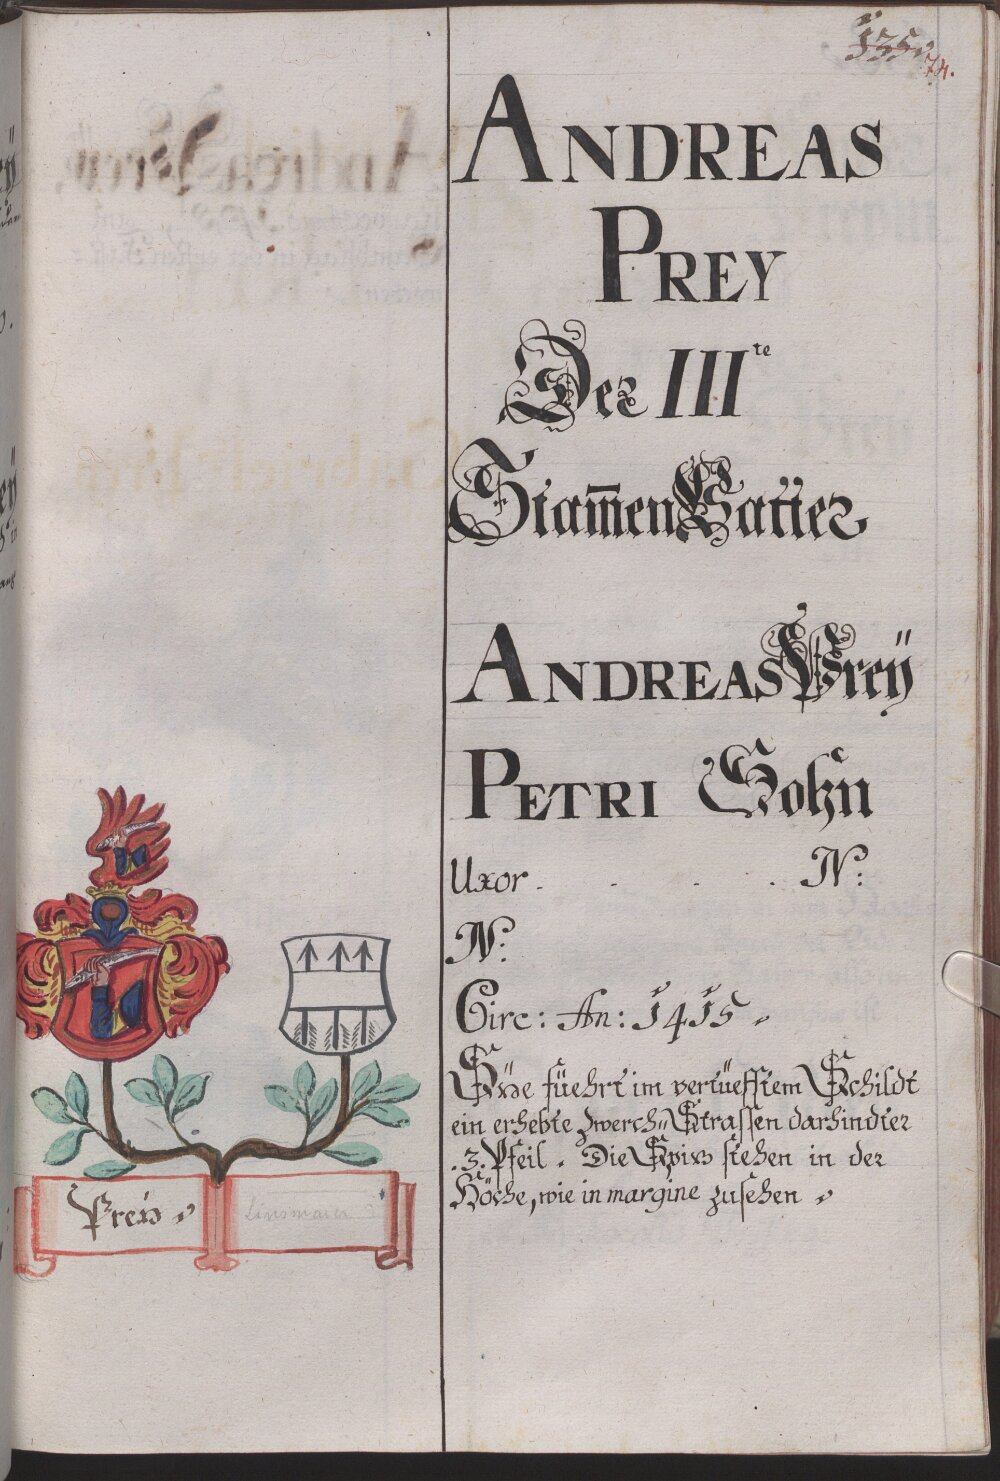 135.
74.
ANDREAS
PREY
Der III te
Stam̅en Vatter
ANDREAS Preÿ
PETRI Sohn
Uxor . . . . N:
N:
Circ: An: 1415.
Süe füehrt im vertüefftem Schildt
ein erhebte zwerch Strassen darhindter
.3. Pfeil. Die Spiz stehen in der
Höche, wie in margine zusehen
Preÿ
Linsmaier